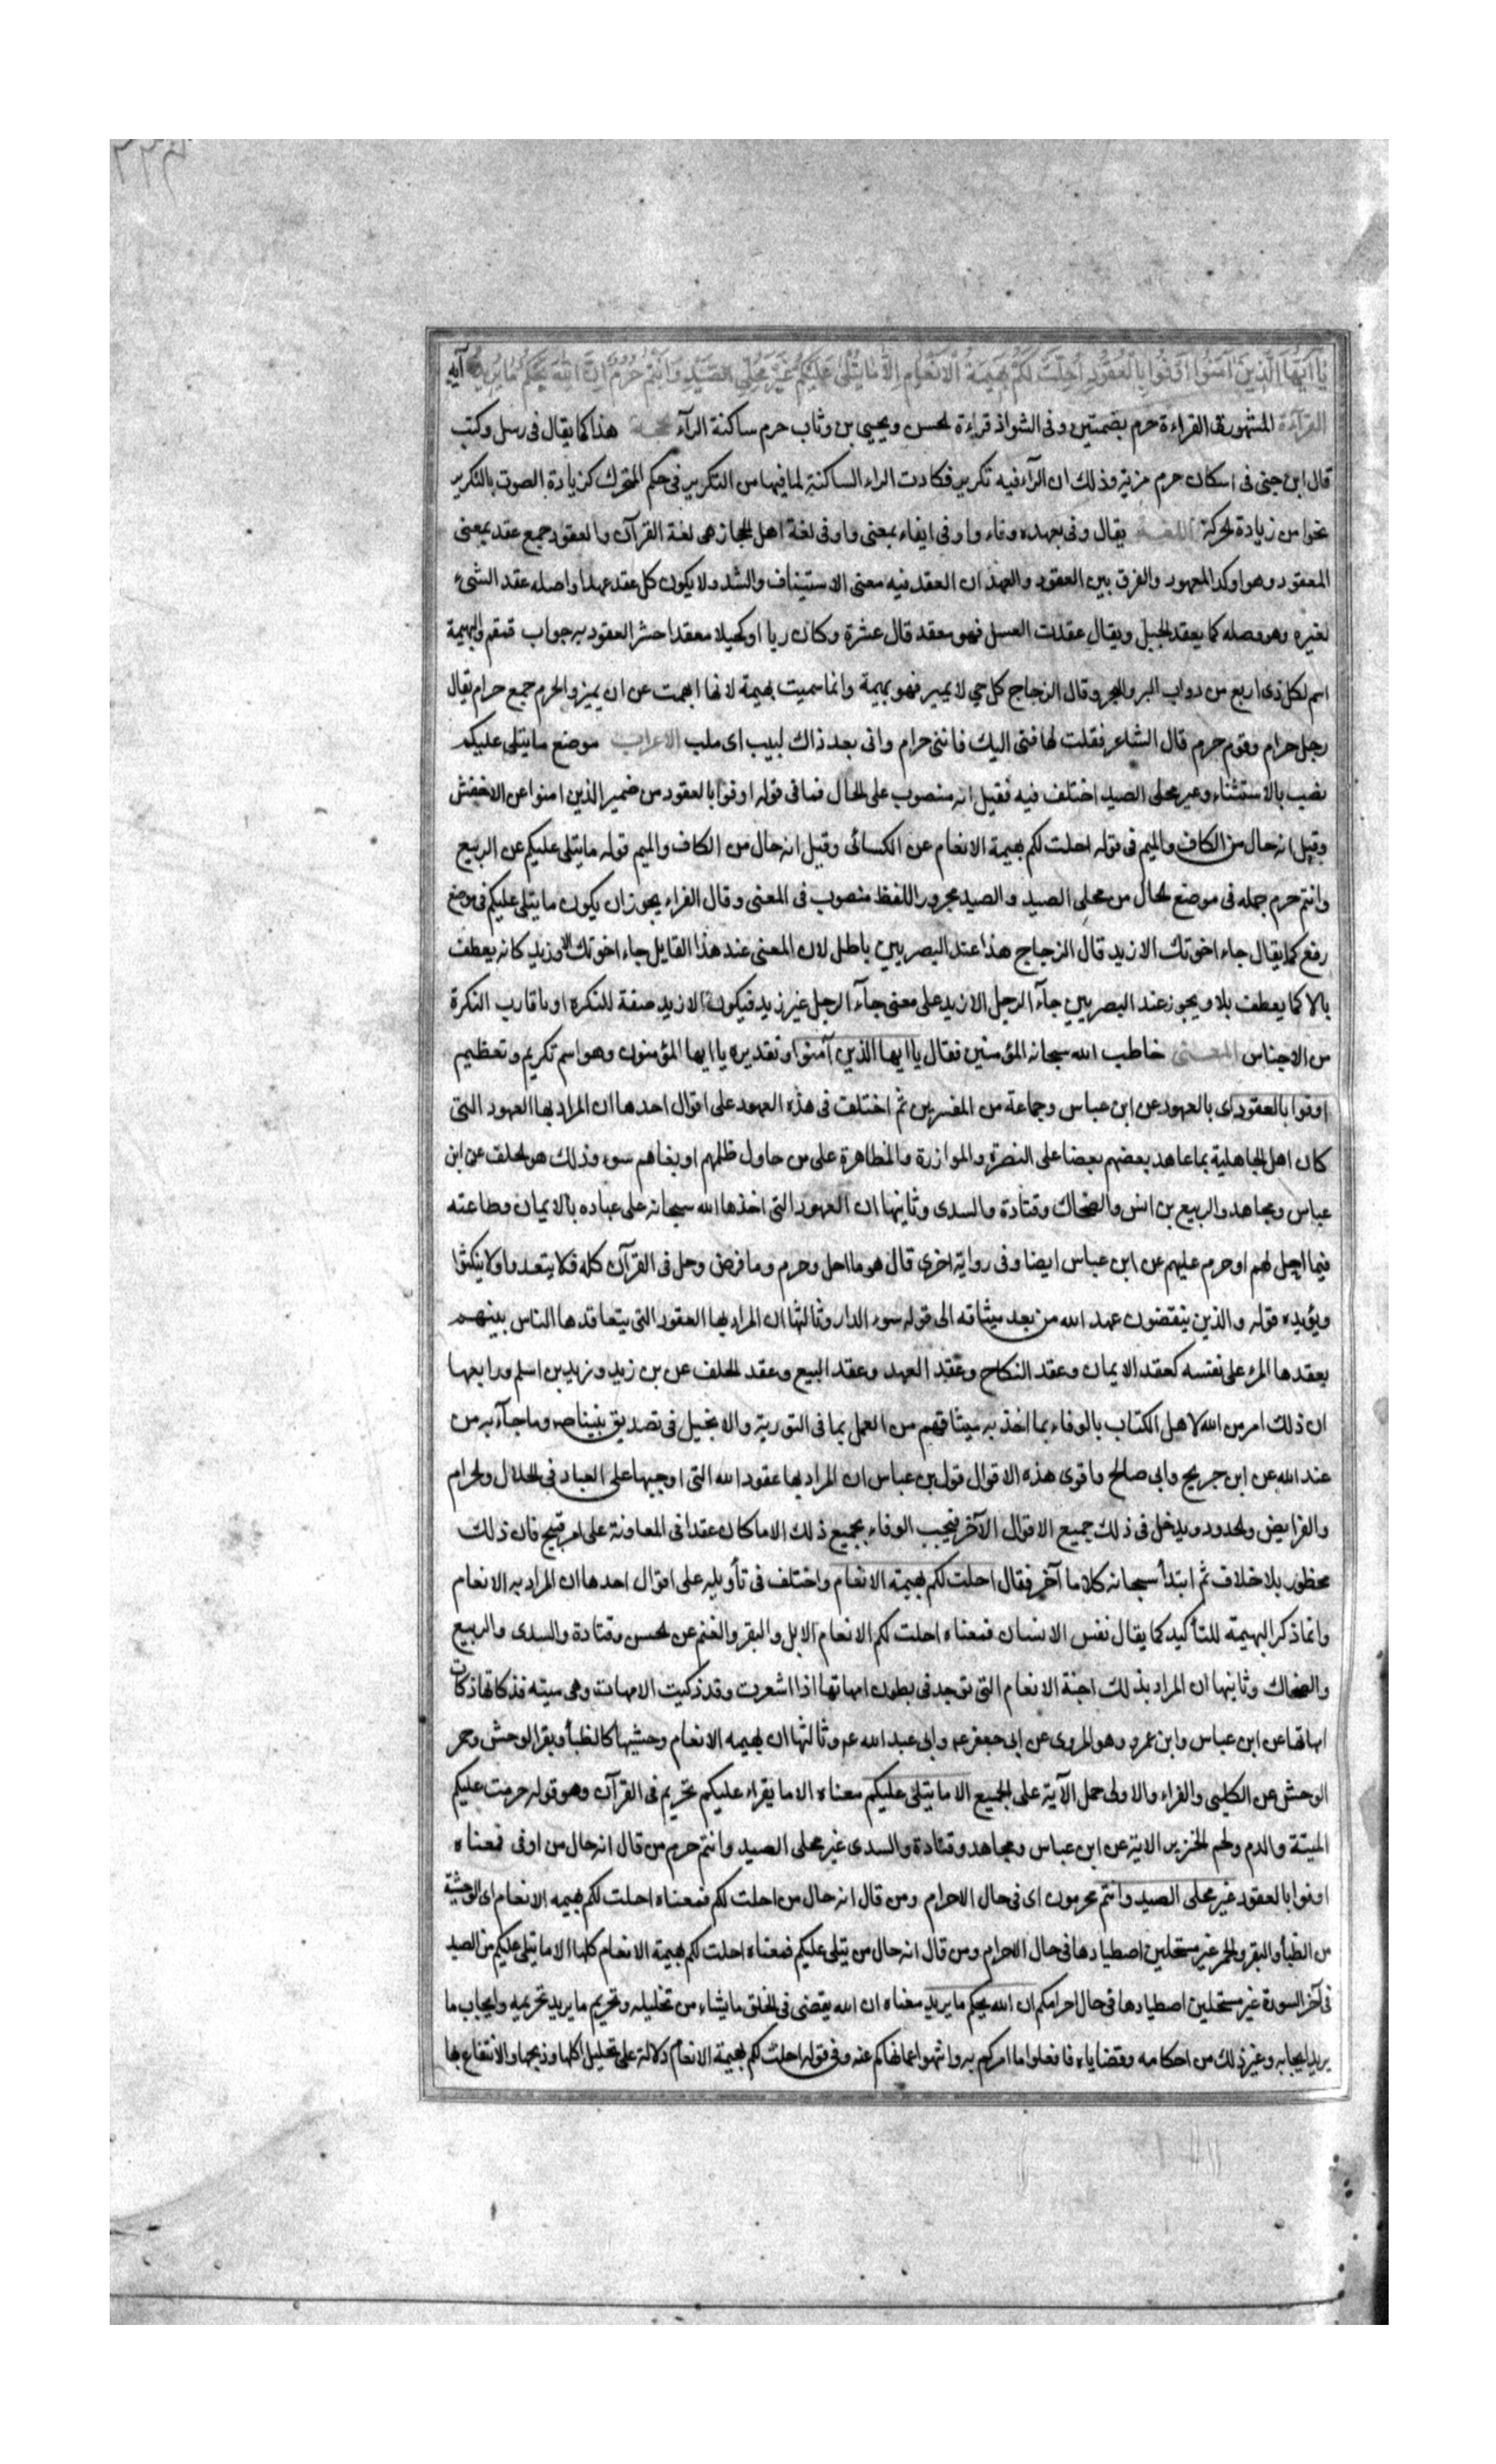 يَا أَيُّهَا الَّذِينَ آمَنُوا أَوْفُوا بِالْعُقُودِ أُحِلَّتْ لَكُمْ بَهِيمَةُ الْأَنْعَامِ إِلَّا مَا يُتْلَى عَلَيْكُمْ غَيْرَ مُحِلِّي الصَّيْدِ وَأَنْتُمْ حُرُمٌ إِنَّ اللَّهَ يَحْكُمُ مَا يُرِيدُ آيه
القرآءة المشهورة في القراءة حرم بضمتين وفى الشواذ قراءة لحسن ويحيى بن وثاب حرم ساكنة الرآء الحجة هذا كما يقال فى رسل وكتب
قال ابن جنى فى اسكان حرم مزية وذلك ان الرآء فيه تكرير فكادت الراء الساكنة لما فيها من التكرير فى حكم المتحرك كزيادة الصوت بالتكرير
نحوا من زيادة لحركة اللغة يقال وفى بعهده وفاء واوفى ايفاء بمعنى واوفى لغة اهل الحجاز هى لغة القرآن والعقود جمع عقد بمعنى
المعقود وهو اوكد العهود والفرق بين العقود والعهد ان العقد فيه معنى الاستيناف والشد ولا يكون كل عقد عهدا واصله عقد الشىء
لغيره وهو وصله كما يعقد الحبل ويقال عقدت العسل فهو معقد قال عشرة وكان ربا او كحيلا معقدا حش العقود به جواب قمقم والبهيمة
اسم لكل ذى اربع من دواب البر والبحر وقال الزجاج كل حي لا يميز فهو بهيمة وانما سميت بهيمة لانها ابهمت عن ان يميز والحرم جمع حرام يقال
رجل حرام وقوم حرم قال الشاعر فقلت لها فيئى اليك فاننى حرام وانى بعد ذاك لبيب اى ملب الاعراب موضع ما يتلى عليكم
نصب بالاستثناء وغير محلى الصيد اختلف فيه فقيل انه منصوب على الحال فما فى قوله اوفوا بالعقود من ضمير الذين امنوا عن الاخفش
وقيل انه حال من الكاف والميم فى قوله احلت لكم بهيمة الانعام عن الكسائى وقيل انه حال من الكاف والميم قوله ما يتلى عليكم عن الربيع
وانتم حرم جمله فى موضع لحال من محلى الصيد والصيد مجرور اللفظ منصوب فى المعنى وقال الفراء يجوز ان يكون ما يتلى عليكم فى موضع
رفع كما يقال جاء اخوتك الا زيد قال الزجاج هذا عند البصريين باطل لان المعنى عند هذا القايل جاء اخوتك الا وزيد كانه يعطف
بالا كما يعطف بلا ويجوز عند البصريين جآء الرجل الا زيد على معنى جآء الرجل غير زيد فيكون الا زيد صفة للنكرة او ما قارب النكرة
من الاجناس المعنى خاطب الله سبحانه المؤمنين فقال يا ايها الذين آمنوا وتقديره يا ايها المؤمنون وهو اسم تكريم وتعظيم
اوفوا بالعقود اى بالعهود عن ابن عباس وجماعة من المفسرين ثم اختلف فى هذه العهود على اقوال احدها ان المراد بها العهود التى
كان اهل الجاهلية بما عاهد بعضهم بعضا على النصرة والموازرة والمظاهرة على من حاول ظلمهم او بغاهم سوء وذلك هو لحلف عن ابن
عباس ومجاهد والربيع بن انس والضحاك وقتادة والسدى وثانيها ان العهود التى اخذها الله سبحانه على عباده بالايمان وطاعته
فيما احل لهم او حرم عليهم عن ابن عباس ايضا وفى رواية اخرى قال هو ما احل وحرم وما فرض وحل فى القرآن كله فلا يتعدوا ولا ينكثوا
ويؤيده قوله والذين ينقضون عهد الله من بعد ميثاقه الى قوله سوء الدار وثالثها ان المراد بها العقود التى يتعاقدها الناس بينهم
يعقدها المرء على نفسه كعقد الايمان وعقد النكاح وعقد العهد وعقد البيع وعقد لحلف عن بن زيد وزيد بن اسلم ورابعها
ان ذلك امر من الله لاهل الكتاب بالوفاء بما اخذ به ميثاقهم من العمل بما فى التورية والانجيل فى تصديق نبينا ص وما جآء به من
عند الله عن ابن جريج وابى صالح واقوى هذه الاقوال قول بن عباس ان المراد بها عقود الله التى اوجبها على العباد فى الحلال ولحرام
والفرايض ولحدود ويدخل فى ذلك جميع الاقوال الآخر فيجب الوفاء بجميع ذلك الا ما كان عقدا فى المعاونة على امر قبيح فان ذلك
محظور بلا خلاف ثم ابتدأ سبحانه كلاما آخر فقال احلت لكم بهيمة الانعام واختلف فى تأويله على اقوال احدها ان المراد به الانعام
وانما ذكر البهيمة للتأكيد كما يقال نفس الانسان فمعناه احلت لكم الانعام الابل والبقر والغنم عن لحسن وقتادة والسدى والربيع
والضحاك وثانيها ان المراد بذلك اجنة الانعام التى توجد فى بطون امهاتها اذا اشعرت وقد ذكيت الامهات وهى ميته فذكاتها ذكات
امهاتها عن ابن عباس وابن عمر وهو المروى عن ابى جعفر ع وابى عبد الله ع وثالثها ان بهيمه الانعام وحشيها كالظبأ وبقر الوحش وحمر
الوحش عن الكلبى والفراء والاولى حمل الآية على الجميع الا ما يتلى عليكم معناه الا ما يقراء عليكم تحريم فى القرآن وهو قوله حرمت عليكم
الميتة والدم ولحم الخنزير الاية عن ابن عباس ومجاهد وقتادة والسدى غير محلى الصيد وانتم حرم من قال انه حال من اوفى فمعناه
اوفوا بالعقود غير محلى الصيد وانتم محرمون اى فى حال الاحرام ومن قال انه حال من احلت لكم فمعناه احلت لكم بهيمه الانعام اى الوحشية
من الظبأ والبقر ولحمر غير مستحلين اصطيادها فى حال الاحرام ومن قال انه حال من يتلى عليكم فمعناه احلت لكم بهيمة الانعام كلها الا ما يتلى عليكم من الصيد
فى آخر السورة غير مستحلين اصطيادها فى حال احرامكم ان الله يحكم ما يريد معناه ان الله يقضى فى الخلق ما يشاء من تحليله وتحريم ما يريد تحريمه وايجاب ما
يريد ايجابه وغير ذلك من احكامه وقضاياه فافعلوا ما امركم به وانتهوا عما نهاكم عنه وفى قوله احلت لكم بهيمة الانعام دلالة على تحليل اكلها وذبحها والانتفاع بها